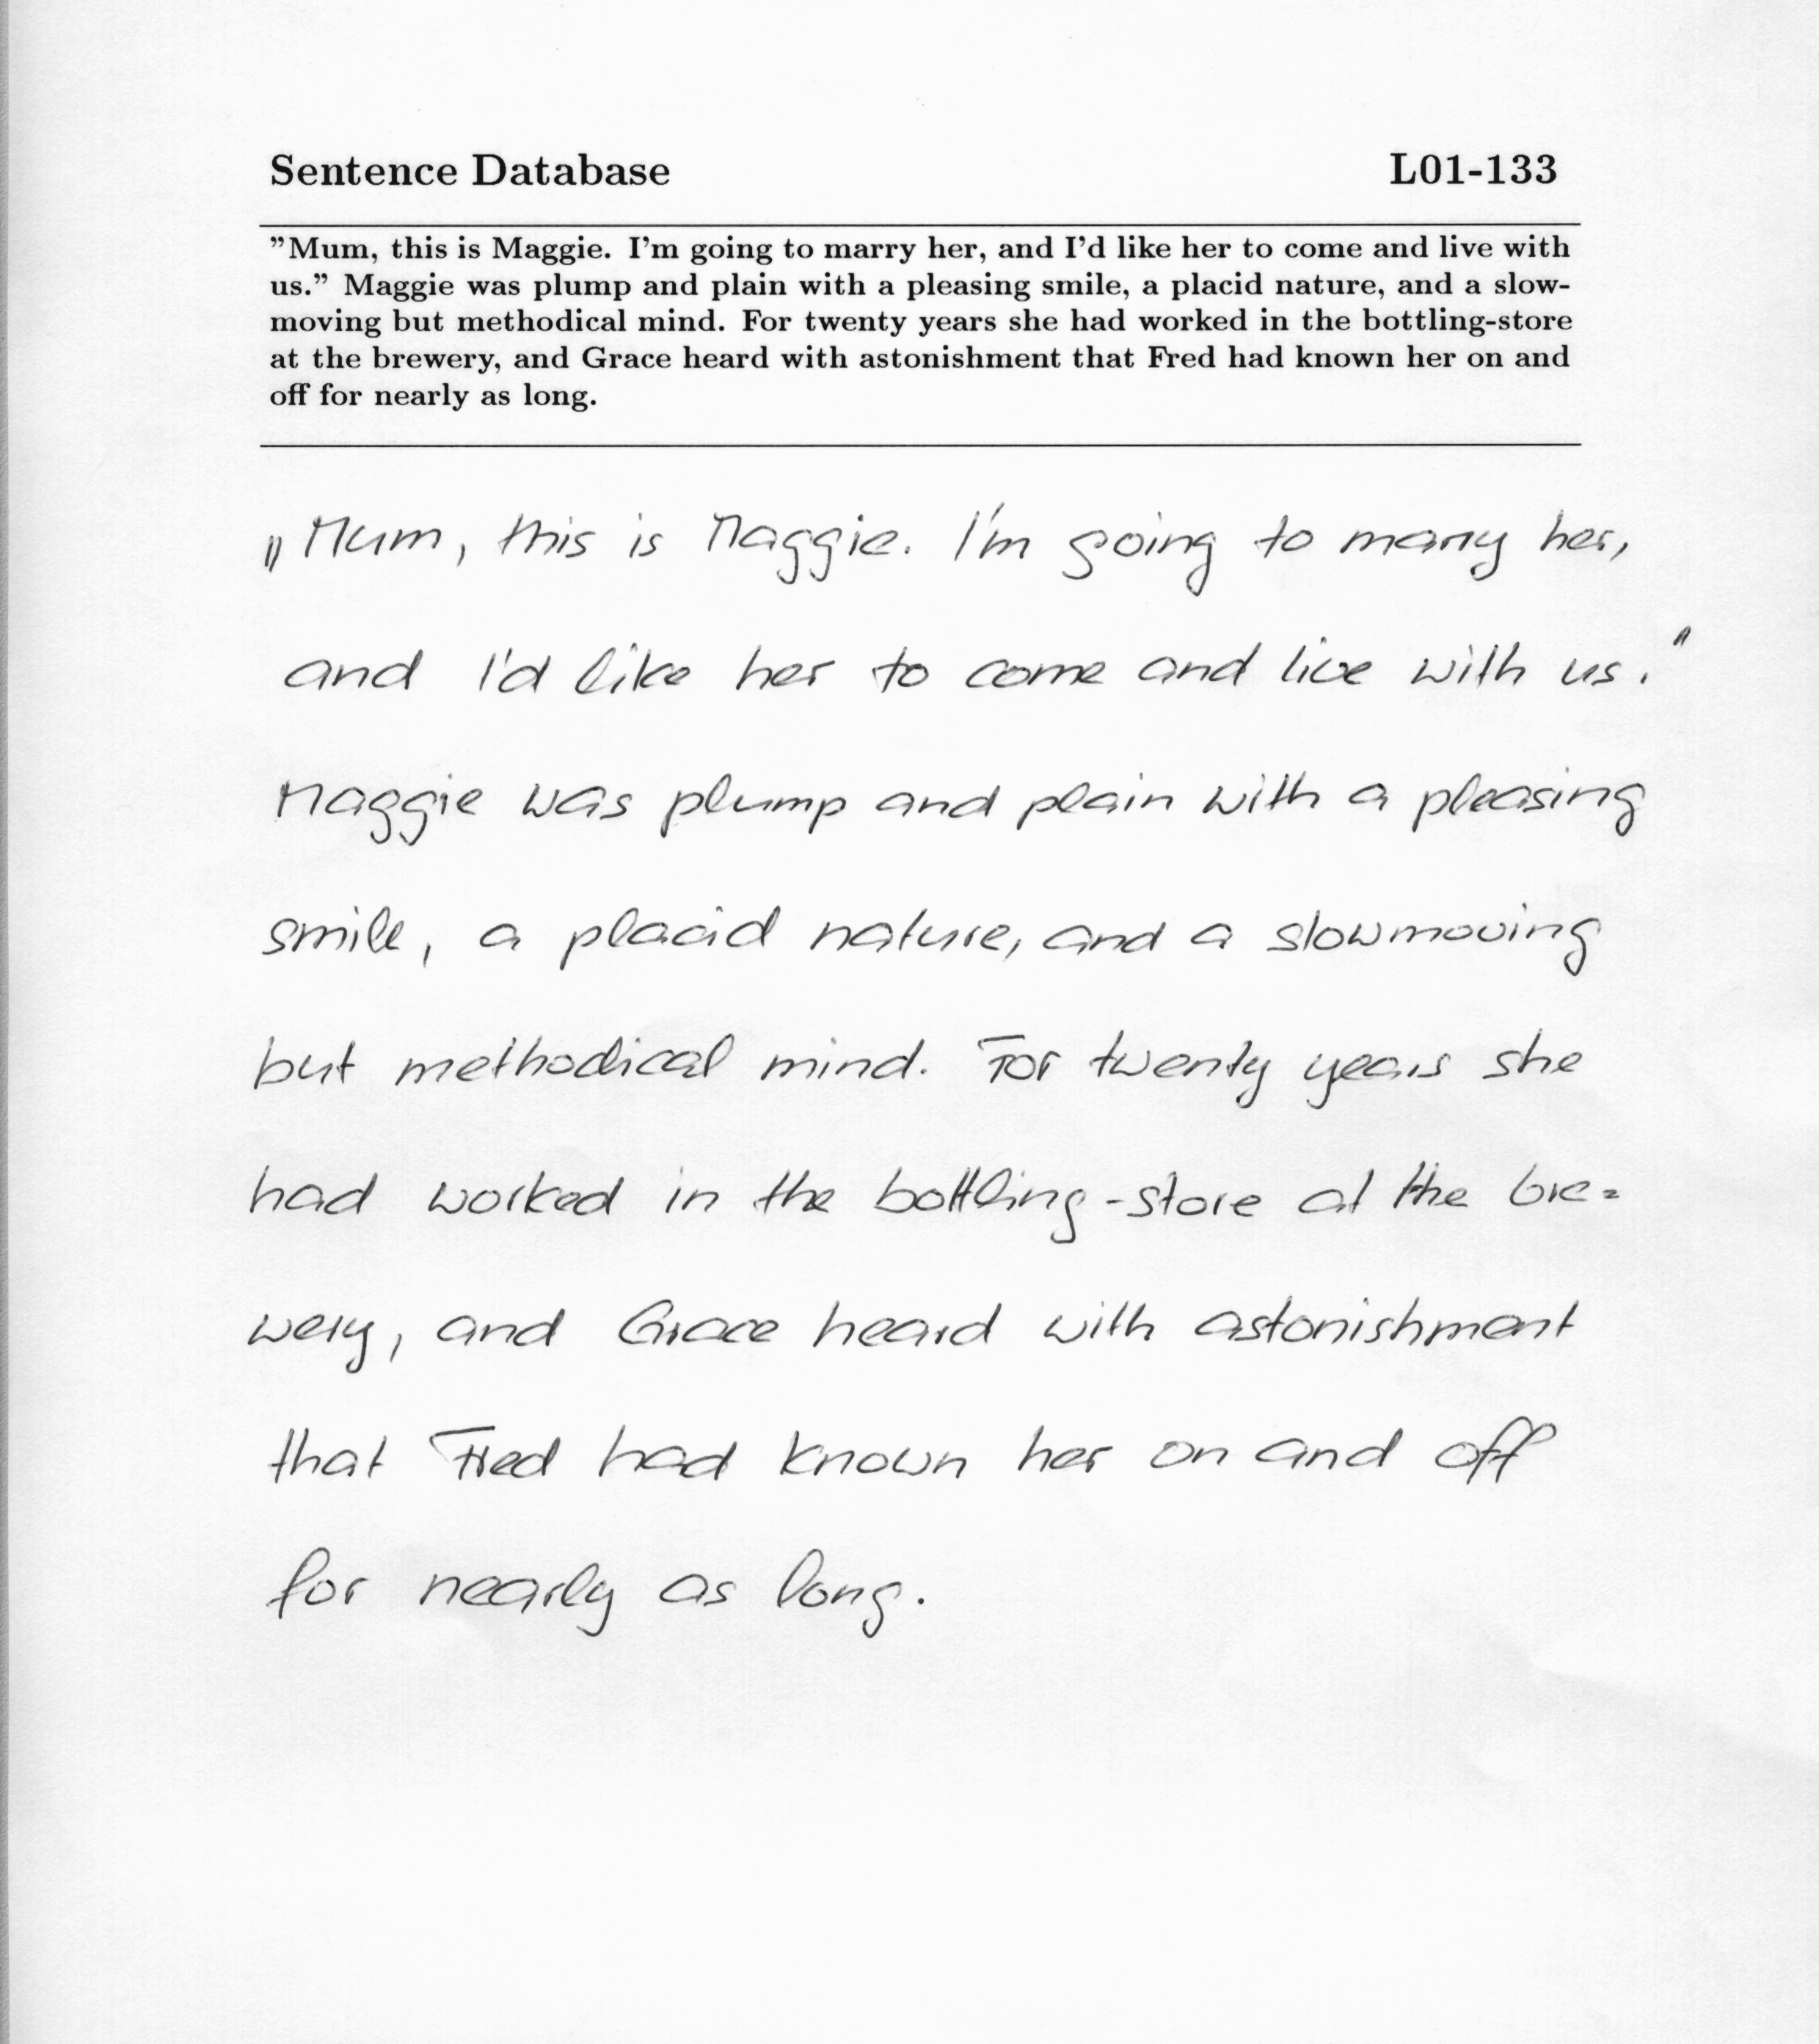 Sentence Database L01-133
”Mum, this is Maggie. I’m going to marry her, and I’d like her to come and live with
us.” Maggie was plump and plain with a pleasing smile, a placid nature, and a slow-
moving but methodical mind. For twenty years she had worked in the bottling-store
at the brewery, and Grace heard with astonishment that Fred had known her on and
off for nearly as long.
„Mum, this is Maggie. I'm going to marry her,
and I'd like her to come and live with us."
Maggie was plump and plain with a pleasing
smile, a placid nature, and a slowmoving
but methodical mind. For twenty years she
had worked in the bottling-store at the bre=
wery, and Grace heard with astonishment
that Fred had known her on and off
for nearly as long.